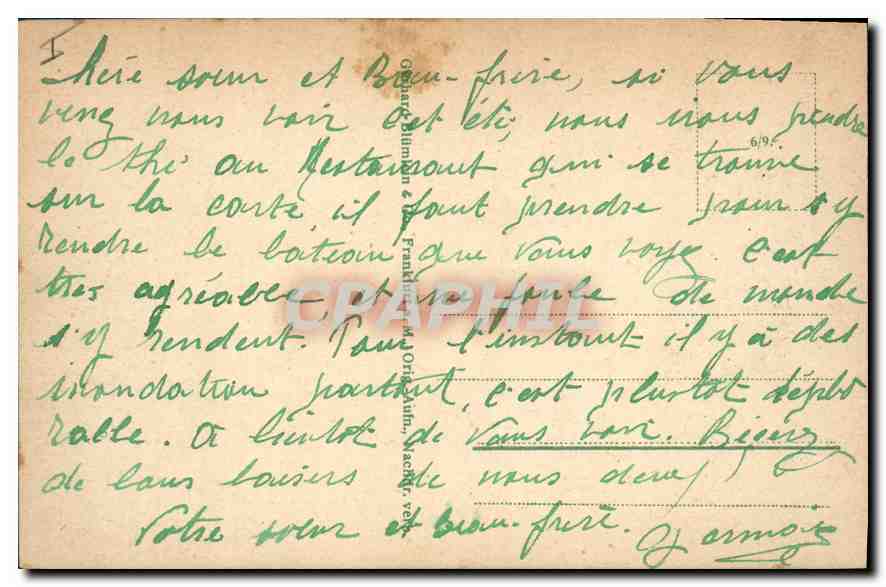 I
Chère sœur et Beau-frère, si vous
venez nous voir cet été, nous irons prendre
le thé au Restaurant qui se trouve
sur la carte il faut prendre pour s'y
rendre le bâteau que vous voyez c'est
très agréable et une foule de monde
s'y rendent. Pour l'instant il y à des
inondation partout, c'est plustot déplo
rable. A bientot de vous voir. Recevez
de bons baisers de nous deux
Votre sœur et beau-frère.
6/9.
Gebhard Blümlein & Co., Frankfurt a. M. Orig.-Aufn., Nachdr. verb.
CPAPHIL